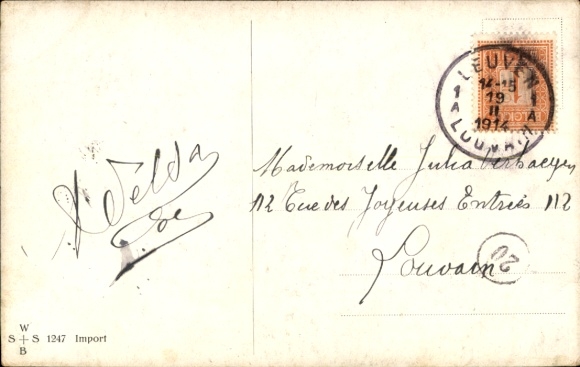 LEUVEN
14-15
19
II
1914
LOUVAIN
1A
1A
Mademoiselle Julia Verhaegen
112 Rue des Joyeuses Entrées 112
Louvain
20
W
S+S 1247 Import
B